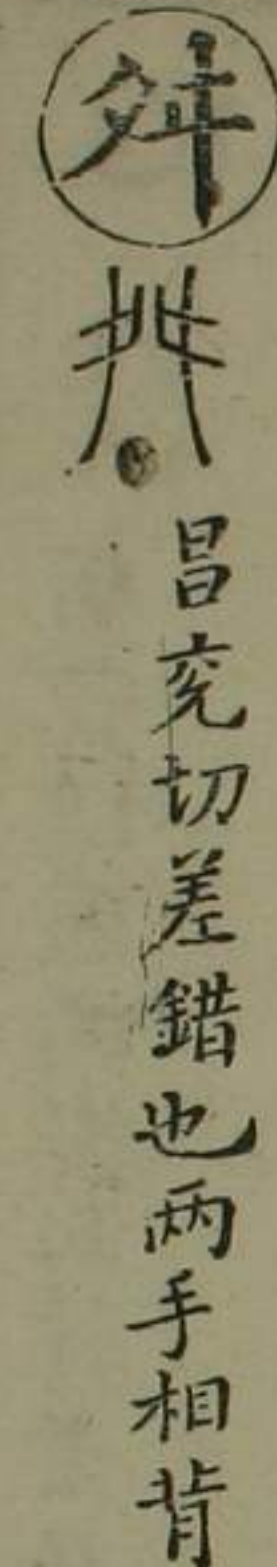 舛
昌兖切差錯也两手相背